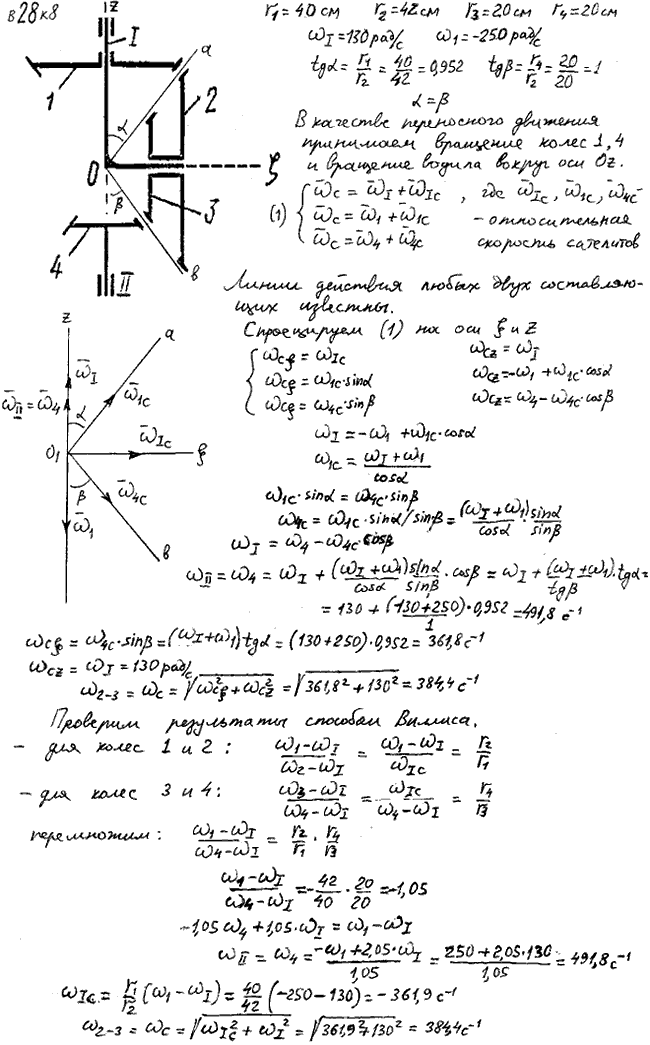 в28к8
z
I
a
1
2
α
O
ξ
β
3
4
II
b
r₁ = 40 см r₂ = 42 см r₃ = 20 см r₄ = 20 см
ω_I = 130 рад/с ω₁ = -250 рад/с
tgα = r₁/r₂ = 40/42 = 0,952 tgβ = r₄/r₂ = 20/20 = 1
α = β
В качестве переносного движения
принимаем вращение колес 1, 4
и вращение водила вокруг оси Oz.
(1) { ω̄_c = ω̄_I + ω̄_Ic , где ω̄_Ic, ω̄_1c, ω̄_4c -
ω̄_c = ω̄₁ + ω̄_1c - относительная
ω̄_c = ω̄₄ + ω̄_4c скорость сателитов
Линии действия любых двух составляю-
щих известны.
Спроецируем (1) на оси ξ и z
{ ω_cξ = ω_Ic ω_cz = ω_I
ω_cξ = ω_1c·sinα ω_cz = -ω₁ + ω_1c·cosα
ω_cξ = ω_4c·sinβ ω_cz = ω₄ - ω_4c·cosβ
z
a
ω̄_I
ω̄_1c
ω̄_II = ω̄₄
α
ω̄_Ic
O₁
ξ
β
ω̄_4c
ω̄₁
b
ω_I = -ω₁ + ω_1c·cosα
ω_1c = (ω_I + ω₁)/cosα
ω_1c·sinα = ω_4c·sinβ
ω_4c = ω_1c·sinα/sinβ = (ω_I + ω₁)/cosα · sinα/sinβ
ω_I = ω₄ - ω_4c·cosβ
ω_II = ω₄ = ω_I + (ω_I + ω₁)/cosα · sinα/sinβ · cosβ = ω_I + (ω_I + ω₁)/tgβ · tgα =
= 130 + (130+250)/1 · 0,952 = 491,8 с⁻¹
ω_cξ = ω_4c·sinβ = (ω_I + ω₁)tgα = (130+250)·0,952 = 361,8 с⁻¹
ω_cz = ω_I = 130 рад/с
ω₂₋₃ = ω_c = √(ω_cξ² + ω_cz²) = √(361,8² + 130²) = 384,4 с⁻¹
Проверим результаты способом Виллиса.
- для колес 1 и 2: (ω₁-ω_I)/(ω₂-ω_I) = (ω₁-ω_I)/ω_Ic = r₂/r₁
- для колес 3 и 4: (ω₃-ω_I)/(ω₄-ω_I) = ω_Ic/(ω₄-ω_I) = r₄/r₃
перемножим: (ω₁-ω_I)/(ω₄-ω_I) = r₂/r₁ · r₄/r₃
(ω₁-ω_I)/(ω₄-ω_I) = -42/40 · 20/20 = -1,05
-1,05ω₄ + 1,05·ω_I = ω₁ - ω_I
ω_II = ω₄ = (-ω₁ + 2,05·ω_I)/1,05 = (250 + 2,05·130)/1,05 = 491,8 с⁻¹
ω_Ic = r₁/r₂ (ω₁ - ω_I) = 40/42 (-250 - 130) = -361,9 с⁻¹
ω₂₋₃ = ω_c = √(ω_Ic² + ω_I²) = √(361,9² + 130²) = 384,4 с⁻¹